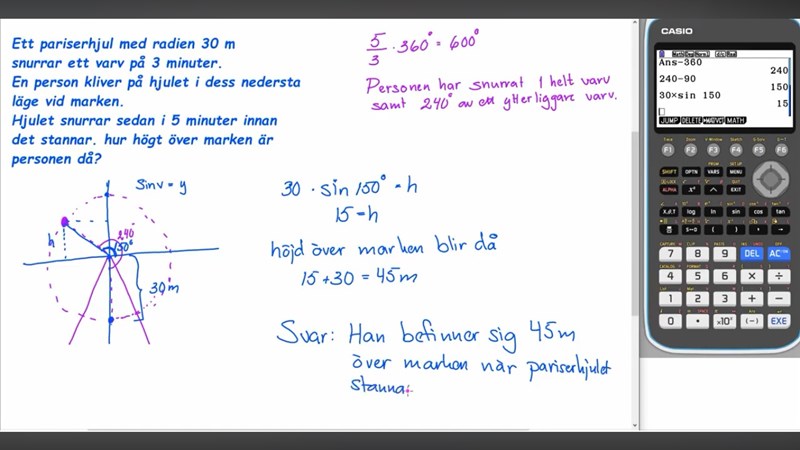 Ett pariserhjul med radien 30 m
snurrar ett varv på 3 minuter.
En person kliver på hjulet i dess nedersta
läge vid marken.
Hjulet snurrar sedan i 5 minuter innan
det stannar. hur högt över marken är
personen då?
5/3 · 360° = 600°
Personen har snurrat 1 helt varv
samt 240° av ett ytterliggare varv.
sin v = y
h
240
150°
30 m
30 · sin 150° = h
15 = h
höjd över marken blir då
15 + 30 = 45 m
Svar: Han befinner sig 45 m
över marken när pariserhjulet
stanna
CASIO
Ans-360
240
240-90
150
30×sin 150
15
JUMP DELETE ►MAT/VCT MATH
F1 F2 F3 F4 F5 F6
SHIFT OPTN VARS MENU
ALPHA x² ^ EXIT
X,θ,T log ln sin cos tan
S⇔D ( ) , →
7 8 9 DEL AC
4 5 6 × ÷
1 2 3 + −
0 . ×10ˣ (−) EXE